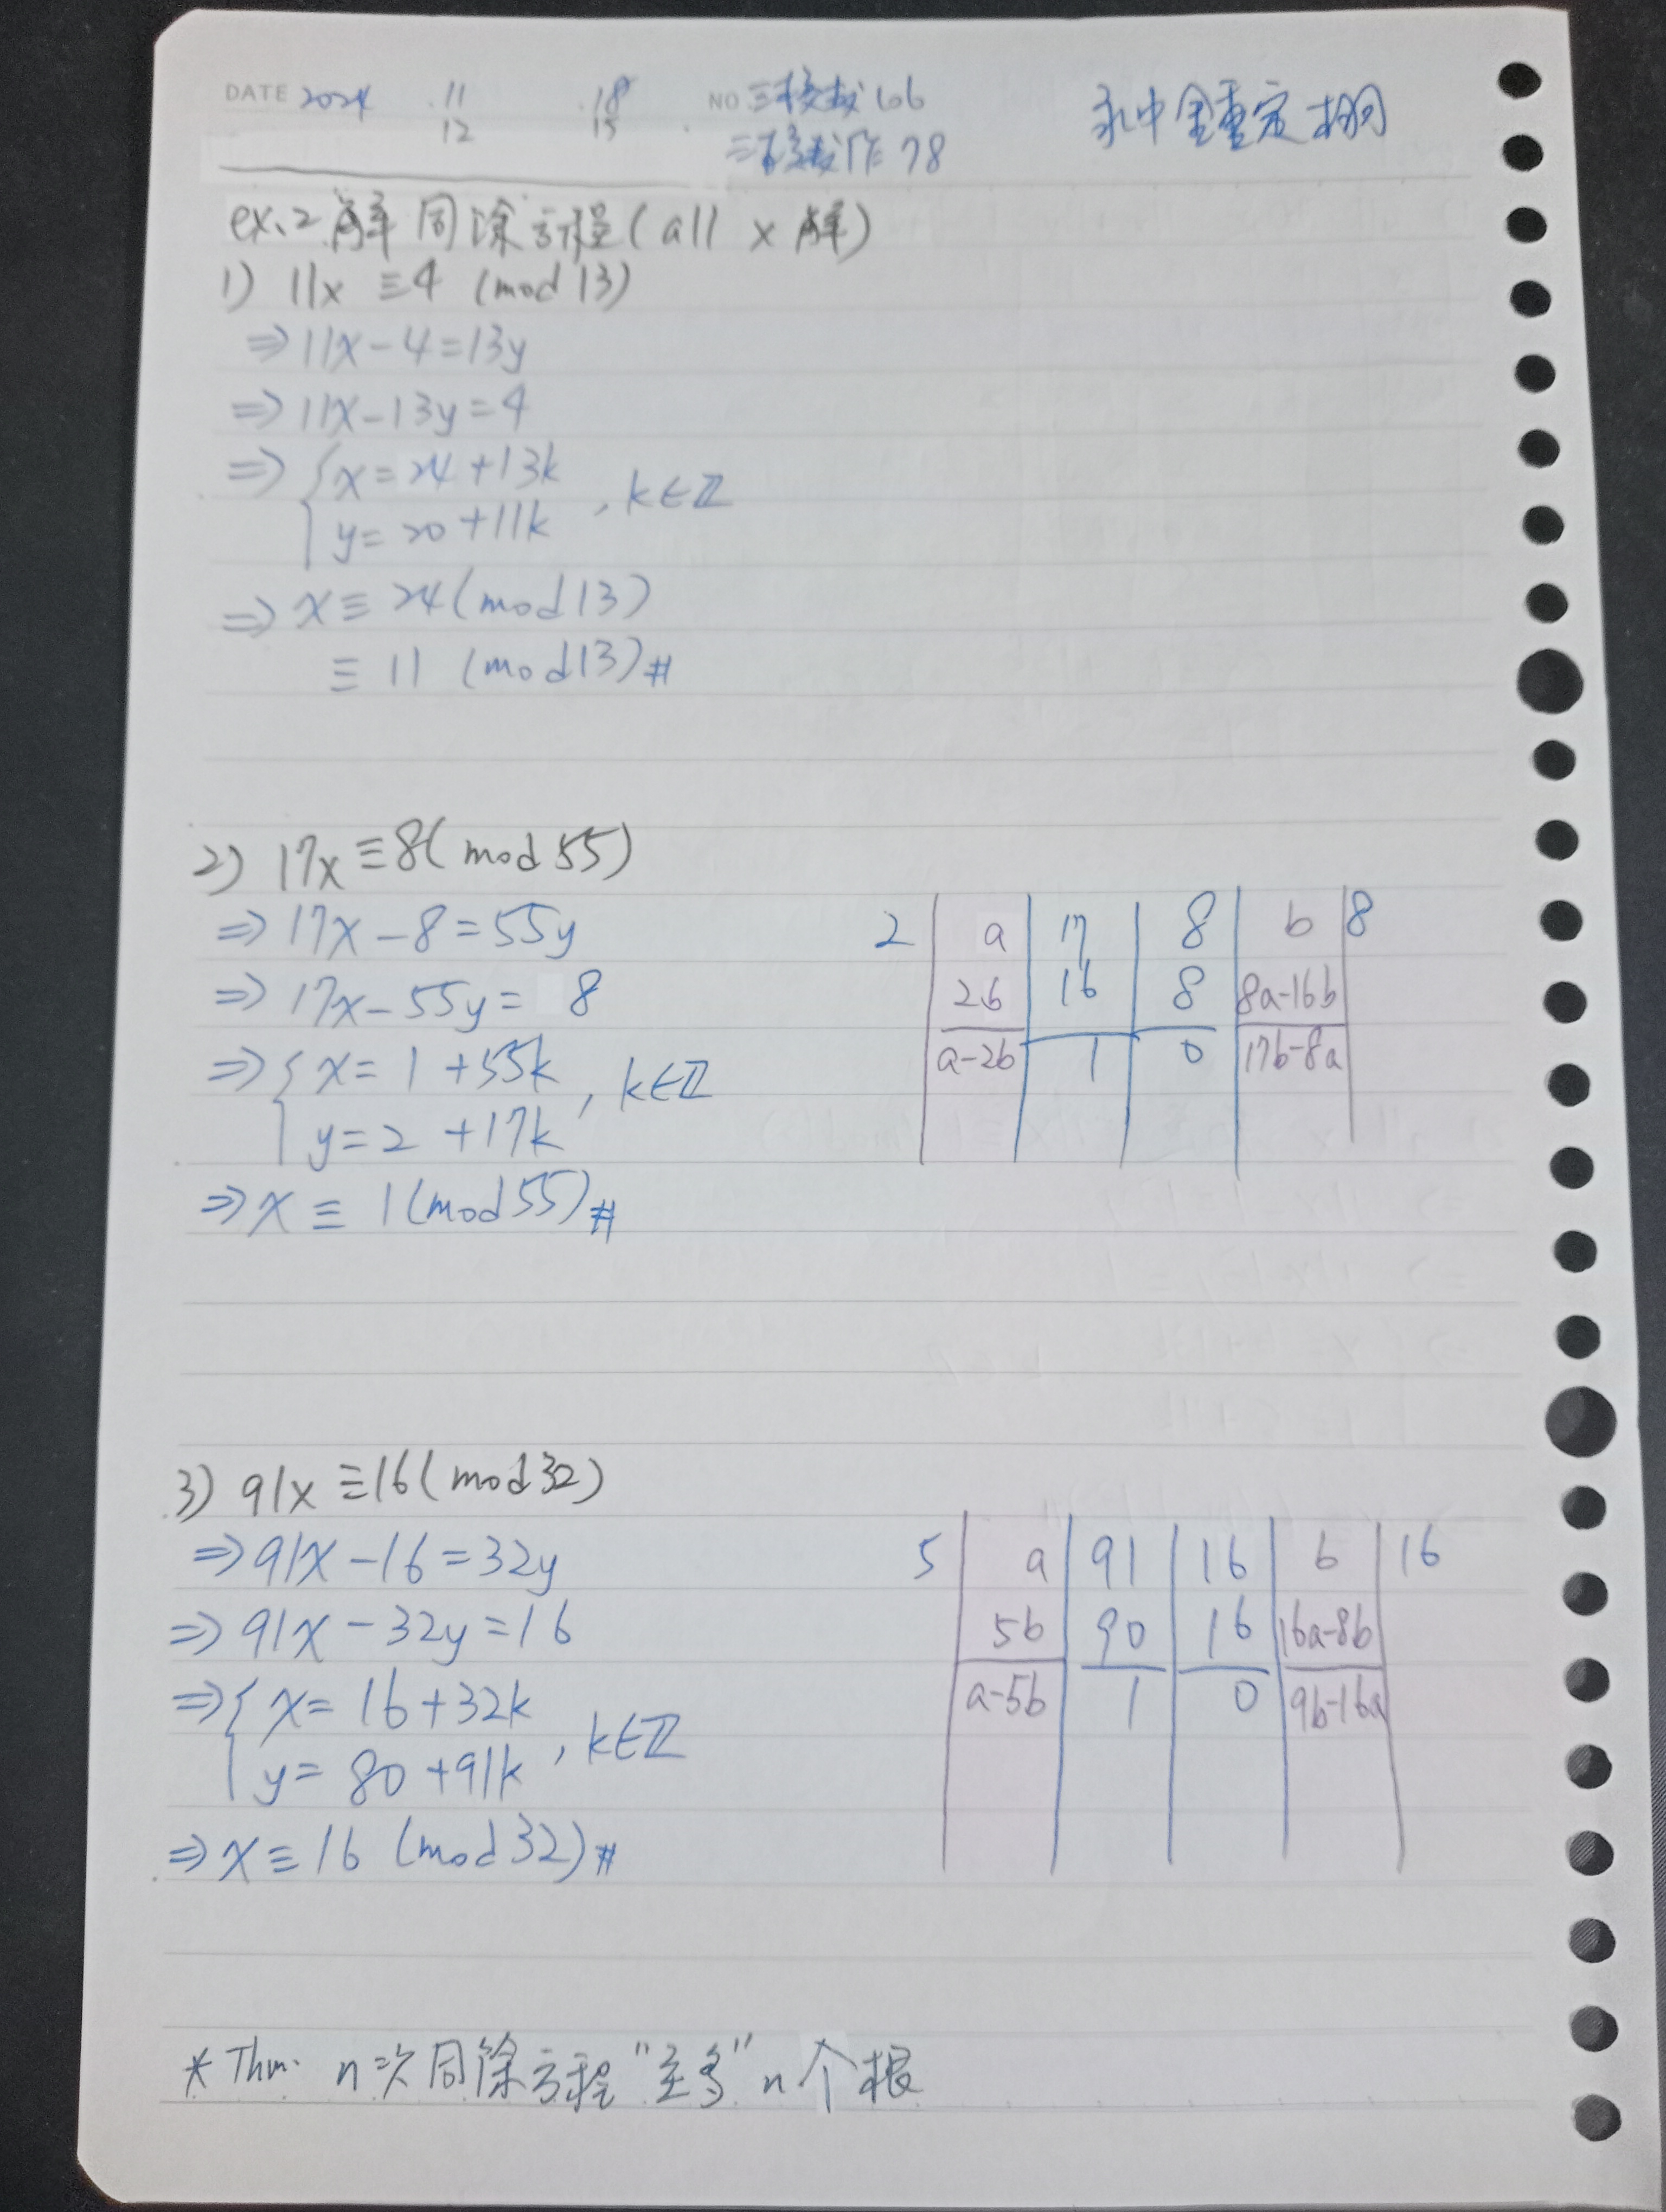 DATE 2024 .11 .18 NO 三校教 106
12 15 三校教作 78
永中 重定 棚
ex.2 解同余方程(all x 解)
1) 11x ≡4 (mod 13)
⇒11x-4=13y
⇒11x-13y=4
⇒{x=24+13k
y=20+11k , k∈ℤ
⇒x≡24(mod13)
≡11 (mod13)#
2) 17x≡8(mod 55)
⇒17x-8=55y
⇒17x-55y= 8
⇒{x=1+55k
y=2+17k , k∈ℤ
⇒x≡1(mod55)#
2 | a | 17 | 8 | b | 8
2b | 16 | 8 | 8a-16b
a-2b | 1 | 0 | 17b-8a
3) 91x≡16(mod32)
⇒91x-16=32y
⇒91x-32y=16
⇒{x=16+32k
y=80+91k , k∈ℤ
⇒x≡16 (mod32)#
5 | a | 91 | 16 | b | 16
5b | 90 | 16 | 16a-8b
a-5b | 1 | 0 | 9b-16a
*Thm. n次同除方程"至多"n个根